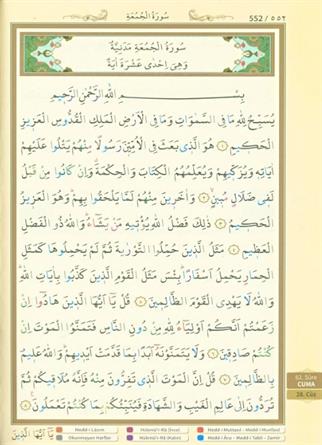 سُورَةُ الْجُمُعَةِ
552 / ٥٥٢
سُورَةُ الْجُمُعَةِ مَدَنِيَّةٌ
وَهِيَ اِحْدٰى عَشْرَةَ اٰيَةً
بِسْــــمِ اللّٰهِ الرَّحْمٰنِ الرَّحِيمِ
يُسَبِّحُ لِلّٰهِ مَا فِى السَّمٰوَاتِ وَمَا فِى الْاَرْضِ الْمَلِكِ الْقُدُّوسِ الْعَزِيزِ
الْحَكِيمِ ﴿١﴾ هُوَ الَّذِى بَعَثَ فِى الْاُمِّيِّنَ رَسُولًا مِنْهُمْ يَتْلُوا عَلَيْهِمْ
اٰيَاتِهِ وَيُزَكِّيهِمْ وَيُعَلِّمُهُمُ الْكِتَابَ وَالْحِكْمَةَ وَاِنْ كَانُوا مِنْ قَبْلُ
لَفِى ضَلَالٍ مُبِينٍ ﴿٢﴾ وَاٰخَرِينَ مِنْهُمْ لَمَّا يَلْحَقُوا بِهِمْ وَهُوَ الْعَزِيزُ
الْحَكِيمُ ﴿٣﴾ ذٰلِكَ فَضْلُ اللّٰهِ يُؤْتِيهِ مَنْ يَشَاءُ وَاللّٰهُ ذُو الْفَضْلِ
الْعَظِيمِ ﴿٤﴾ مَثَلُ الَّذِينَ حُمِّلُوا التَّوْرٰيةَ ثُمَّ لَمْ يَحْمِلُوهَا كَمَثَلِ
الْحِمَارِ يَحْمِلُ اَسْفَارًا بِئْسَ مَثَلُ الْقَوْمِ الَّذِينَ كَذَّبُوا بِاٰيَاتِ اللّٰهِ
وَاللّٰهُ لَا يَهْدِى الْقَوْمَ الظَّالِمِينَ ﴿٥﴾ قُلْ يَا اَيُّهَا الَّذِينَ هَادُوا اِنْ
زَعَمْتُمْ اَنَّكُمْ اَوْلِيَاءُ لِلّٰهِ مِنْ دُونِ النَّاسِ فَتَمَنَّوُا الْمَوْتَ اِنْ
كُنْتُمْ صَادِقِينَ ﴿٦﴾ وَلَا يَتَمَنَّوْنَهُ اَبَدًا بِمَا قَدَّمَتْ اَيْدِيهِمْ وَاللّٰهُ عَلِيمٌ
بِالظَّالِمِينَ ﴿٧﴾ قُلْ اِنَّ الْمَوْتَ الَّذِى تَفِرُّونَ مِنْهُ فَاِنَّهُ مُلَاقِيكُمْ ثُمَّ
تُرَدُّونَ اِلٰى عَالِمِ الْغَيْبِ وَالشَّهَادَةِ فَيُنَبِّئُكُمْ بِمَا كُنْتُمْ تَعْمَلُونَ ﴿٨﴾
62. Sûre
CUMA
28. Cüz
يَا اَيُّهَا الَّذِينَ
Medd-i Lâzım
Medd-i Muttasıl - Medd-i Munfasıl
Okunmayan Harfler
Medd-i Ârız - Medd-i Tabîî - Zamir